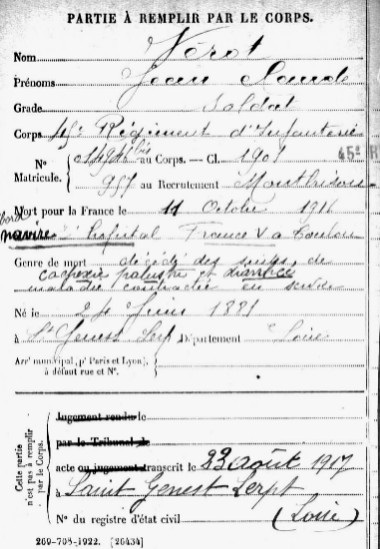 PARTIE À REMPLIR PAR LE CORPS.
Nom Vérot
Prénoms Jean Claude
Grade Soldat
Corps 45e Régiment d'Infanterie
N° Matricule. au Corps. — Cl. 1901 45e R
997 au Recrutement Montbrison
Mort pour la France le 11 Octobre 1916
bord navire Hôpital France V à Toulon
Genre de mort décédé des suites de
cachexie palustre et diarrhée
maladie contractée en service
Né le 24 Juin 1881
à St Genest Lerp Département Loire
Arrt municipal (pr Paris et Lyon),
à défaut rue et N°.
Cette partie n'est pas à remplir par le Corps.
Jugement rendu le
par le Tribunal de
acte ou jugement transcrit le 23 août 1917
à Saint Genest Lerpt
N° du registre d'état civil (Loire)
269-708-1922. [26434]